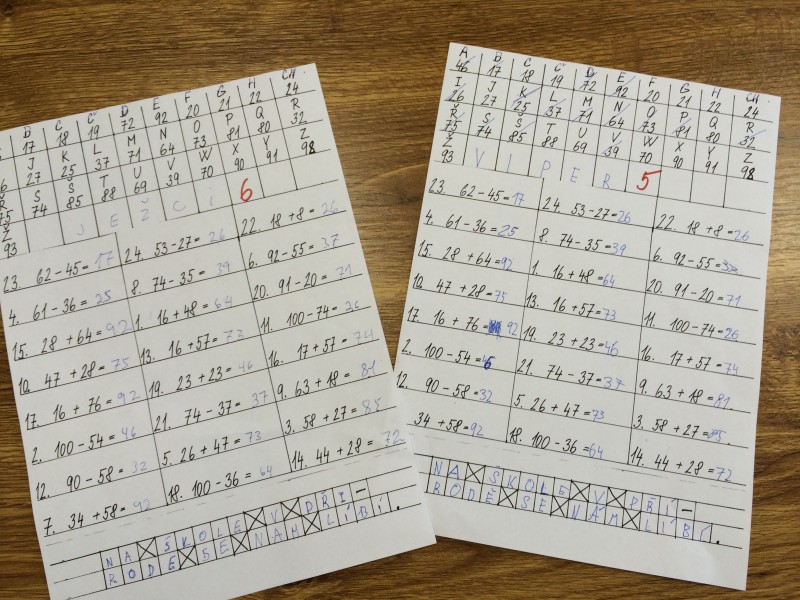 B C Č D E F G H CH
17 18 19 72 92 20 21 22 24
J K L M N O P Q R
27 25 37 71 64 73 81 80 32
Ř S Š T U V W X Y Z
75 74 85 88 69 39 70 90 91 98
Ž
93 JEŽCI 6
23. 62-45=17 24. 53-27=26 22. 18+8=26
4. 61-36=25 8. 74-35=39 6. 92-55=37
15. 28+64=92 1. 16+48=64 20. 91-20=71
10. 47+28=75 13. 16+57=72 11. 100-74=26
17. 16+76=92 19. 23+23=46 16. 17+57=74
2. 100-54=46 21. 74-37=37 9. 63+18=81
12. 90-58=32 5. 26+47=73 3. 58+27=85
7. 34+58=92 18. 100-36=64 14. 44+28=72
NA ŠKOLE V PŘÍ-
RODĚ SE NÁM LÍBÍ.
A B C Č D E F G H CH
46 17 18 19 72 92 20 21 22 24
I J K L M N O P Q R
26 27 25 37 71 64 73 81 80 32
Ř S Š T U V W X Y Z
75 74 85 88 69 39 70 90 91 98
Ž
93 VIPER 5
23. 62-45=17 24. 53-27=26 22. 18+8=26
4. 61-36=25 8. 74-35=39 6. 92-55=
15. 28+64=92 1. 16+48=64 20. 91-20=71
10. 47+28=75 13. 16+57=73 11. 100-74=26
17. 16+76=92 19. 23+23=46 16. 17+57=74
2. 100-54=46 21. 74-37=37 9. 63+18=81
12. 90-58=32 5. 26+47=73 3. 58+27=85
34+58=92 18. 100-36=64 14. 44+28=72
NA ŠKOLE V PŘÍ-
RODĚ SE NÁM LÍBÍ.